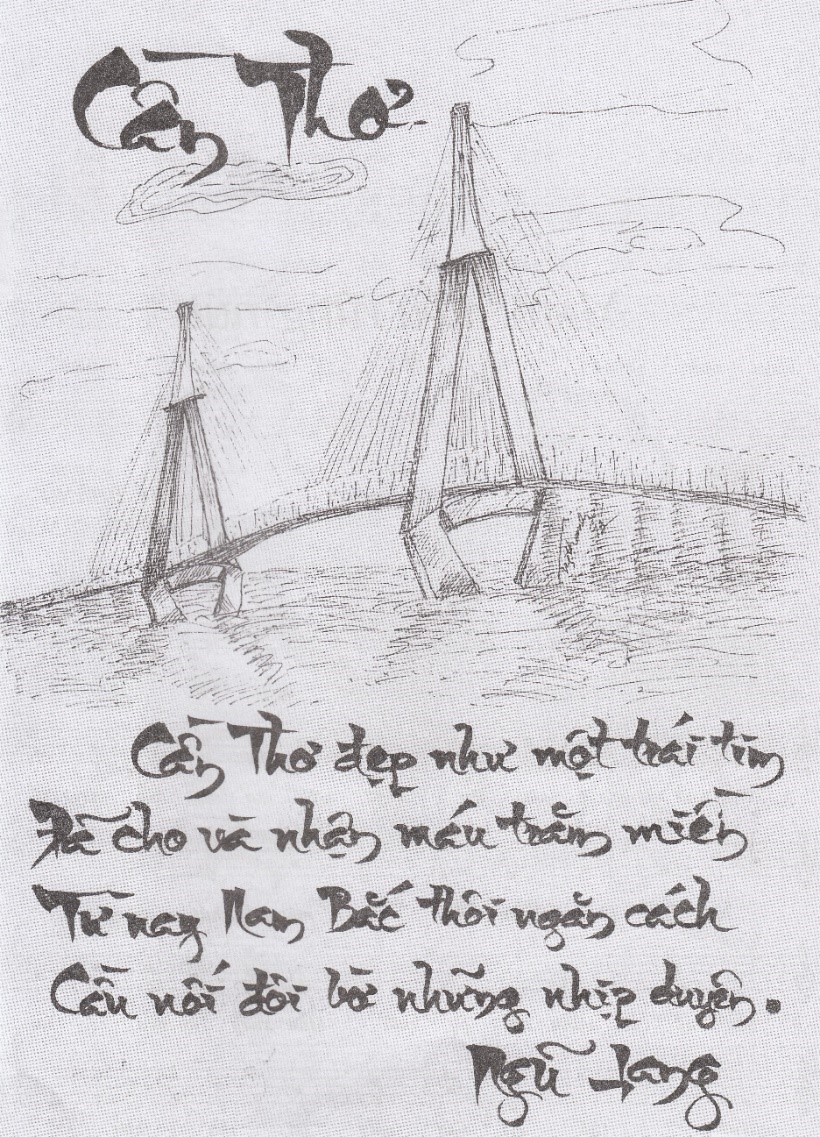 Cần Thơ
Cần Thơ đẹp như một trái tim
Đã cho và nhận máu trăm miền
Từ nay Nam Bắc thôi ngăn cách
Cầu nối đôi bờ những nhịp duyên.
Ngũ Lang